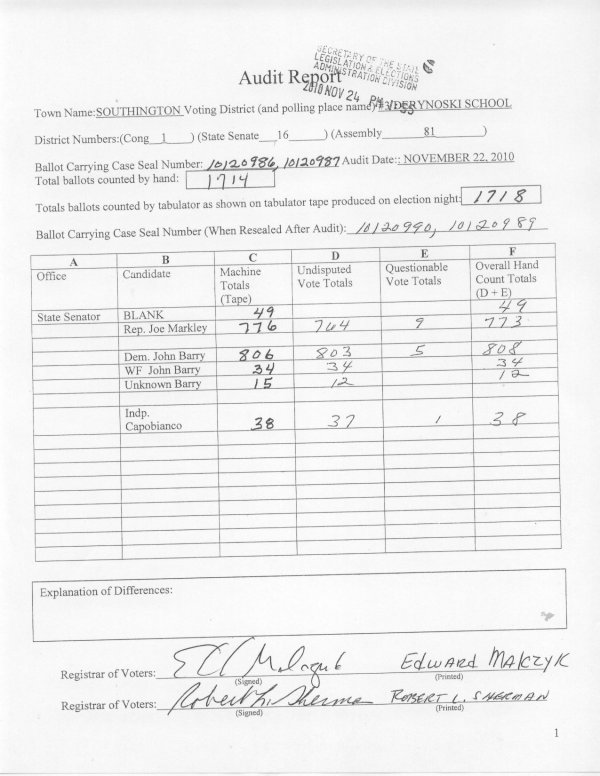 SECRETARY OF THE STATE
LEGISLATION & ELECTIONS
ADMINISTRATION DIVISION
Audit Report
2010 NOV 24
Town Name:SOUTHINGTON Voting District (and polling place name) DERYNOSKI SCHOOL
District Numbers:(Cong 1 ) (State Senate 16 ) (Assembly 81 )
Ballot Carrying Case Seal Number: 10120986, 10120987 Audit Date:: NOVEMBER 22, 2010
Total ballots counted by hand: 1714
Totals ballots counted by tabulator as shown on tabulator tape produced on election night: 1718
Ballot Carrying Case Seal Number (When Resealed After Audit): 10120990, 10120989
A B C D E F
Office Candidate Machine Totals (Tape) Undisputed Vote Totals Questionable Vote Totals Overall Hand Count Totals (D + E)
State Senator BLANK 49 49
Rep. Joe Markley 776 764 9 773
Dem. John Barry 806 803 5 808
WF John Barry 34 34 34
Unknown Barry 15 12 12
Indp. Capobianco 38 37 1 38
Explanation of Differences:
Registrar of Voters: Edward Malczyk
(Signed) (Printed)
Registrar of Voters: Robert L. Sherman ROBERT L. SHERMAN
(Signed) (Printed)
1